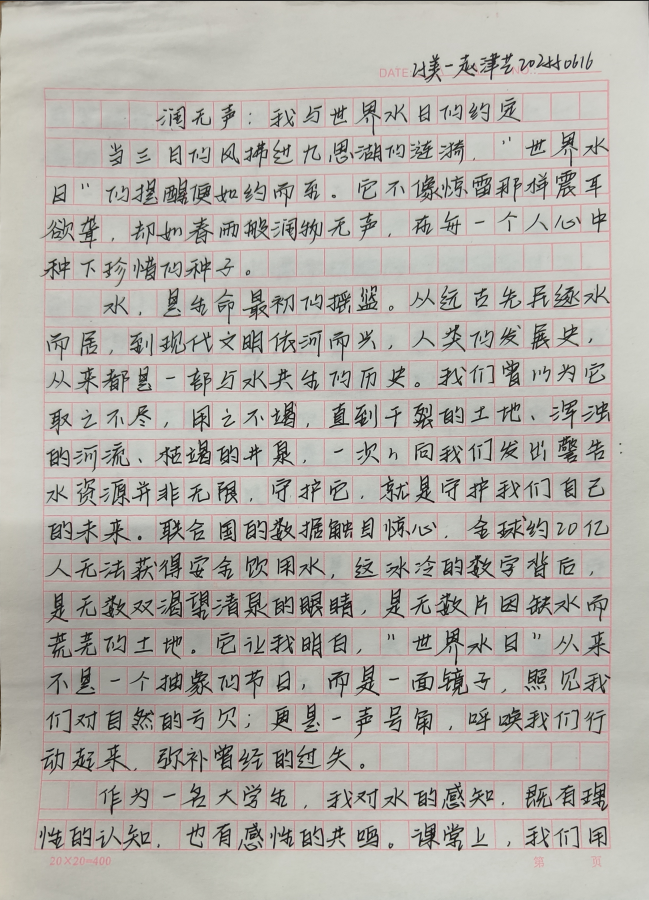 DATE
计美一赵津艺 202550616
润无声：我与世界水日的约定
当三日的风拂过九思湖的涟漪，“世界水
日”的提醒便如约而至。它不像惊雷那样震耳
欲聋，却如春雨般润物无声，在每一个人心中
种下珍惜的种子。
水，是生命最初的摇篮。从远古先民逐水
而居，到现代文明依河而兴，人类的发展史，
从来都是一部与水共生的历史。我们曾以为它
取之不尽，用之不竭，直到干裂的土地、浑浊
的河流、枯竭的井泉，一次次向我们发出警告：
水资源并非无限，守护它，就是守护我们自己
的未来。联合国的数据触目惊心，全球约20亿
人无法获得安全饮用水，这冰冷的数字背后，
是无数双渴望清泉的眼睛，是无数片因缺水而
荒芜的土地。它让我明白，“世界水日”从来
不是一个抽象的节日，而是一面镜子，照见我
们对自然的亏欠；更是一声号角，呼唤我们行
动起来，弥补曾经的过失。
作为一名大学生，我对水的感知，既有理
性的认知，也有感性的共鸣。课堂上，我们用
20×20=400
第 页